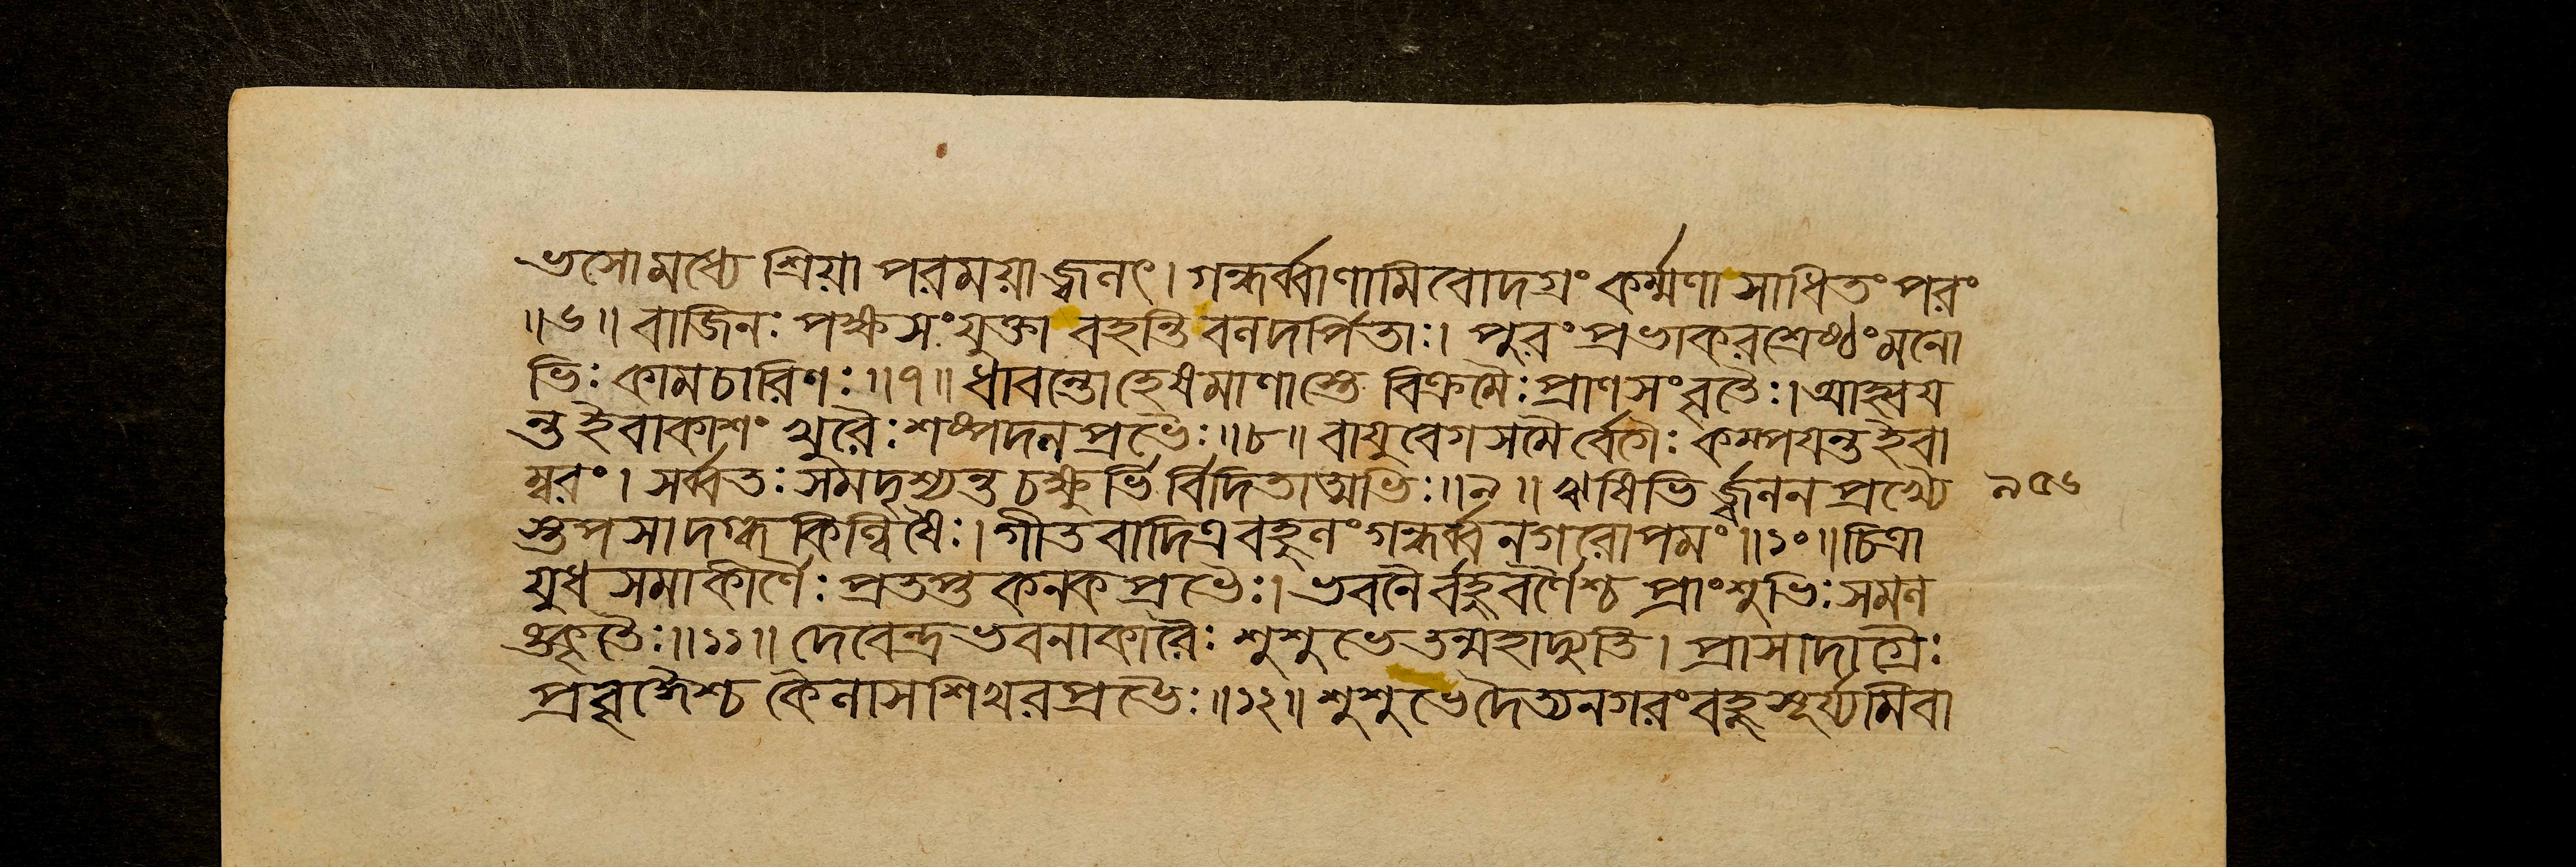 ভসো মধ্যে শ্রিয়া পরময়া জ্বলৎ। গন্ধর্ব্বাণামিবোদগ্রং কর্ম্মণা সাধিতং পরং
॥৬॥ বাজিনঃ পক্ষসংযুক্তা বহন্তি বলদর্পিতাঃ। পুরং প্রভাকরশ্রেষ্ঠং মনো
ভিঃ কামচারিণঃ॥৭॥ ধাবন্তো হ্রেষমাণাস্তে বিক্রমৈঃ প্রাণসংবৃতৈঃ। আহ্বয
ন্ত ইবাকাশং খুরৈঃ শষ্পদলপ্রভৈঃ॥৮॥ বায়ুবেগসমৈর্বেগৈঃ কম্পযন্ত ইবা
ম্বরং। সর্ব্বতঃ সমদৃশ্যন্ত চক্ষুর্ভির্বিদিতাত্মভিঃ॥৯॥ ঋষিভির্জ্জ্বলনপ্রখ্যৈ
স্তপসা দগ্ধকিল্বিষৈঃ। গীতবাদিত্রবহুলং গন্ধর্ব্বনগরোপমং॥১০॥ চিত্রা
য়ুধসমাকীর্ণৈঃ প্রতপ্তকনকপ্রভৈঃ। ভবনৈর্বহুবর্ণৈশ্চ প্রাংশুভিঃ সমল
ঙ্কৃতৈঃ॥১১॥ দেবেন্দ্রভবনাকারৈঃ শুশুভে তন্মহাদ্যুতি। প্রাসাদাগ্রৈঃ
প্রবৃদ্ধৈশ্চ কৈলাসশিখরপ্রভৈঃ॥১২॥ শুশুভে দৈত্যনগরং বহুসূর্য্যমিবা
৯৫৬